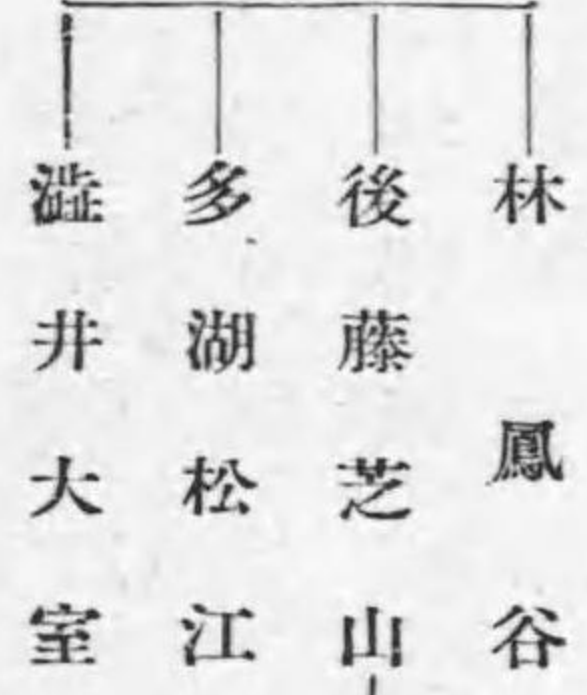 林鳳谷
後藤芝山
多湖松江
澁井大室